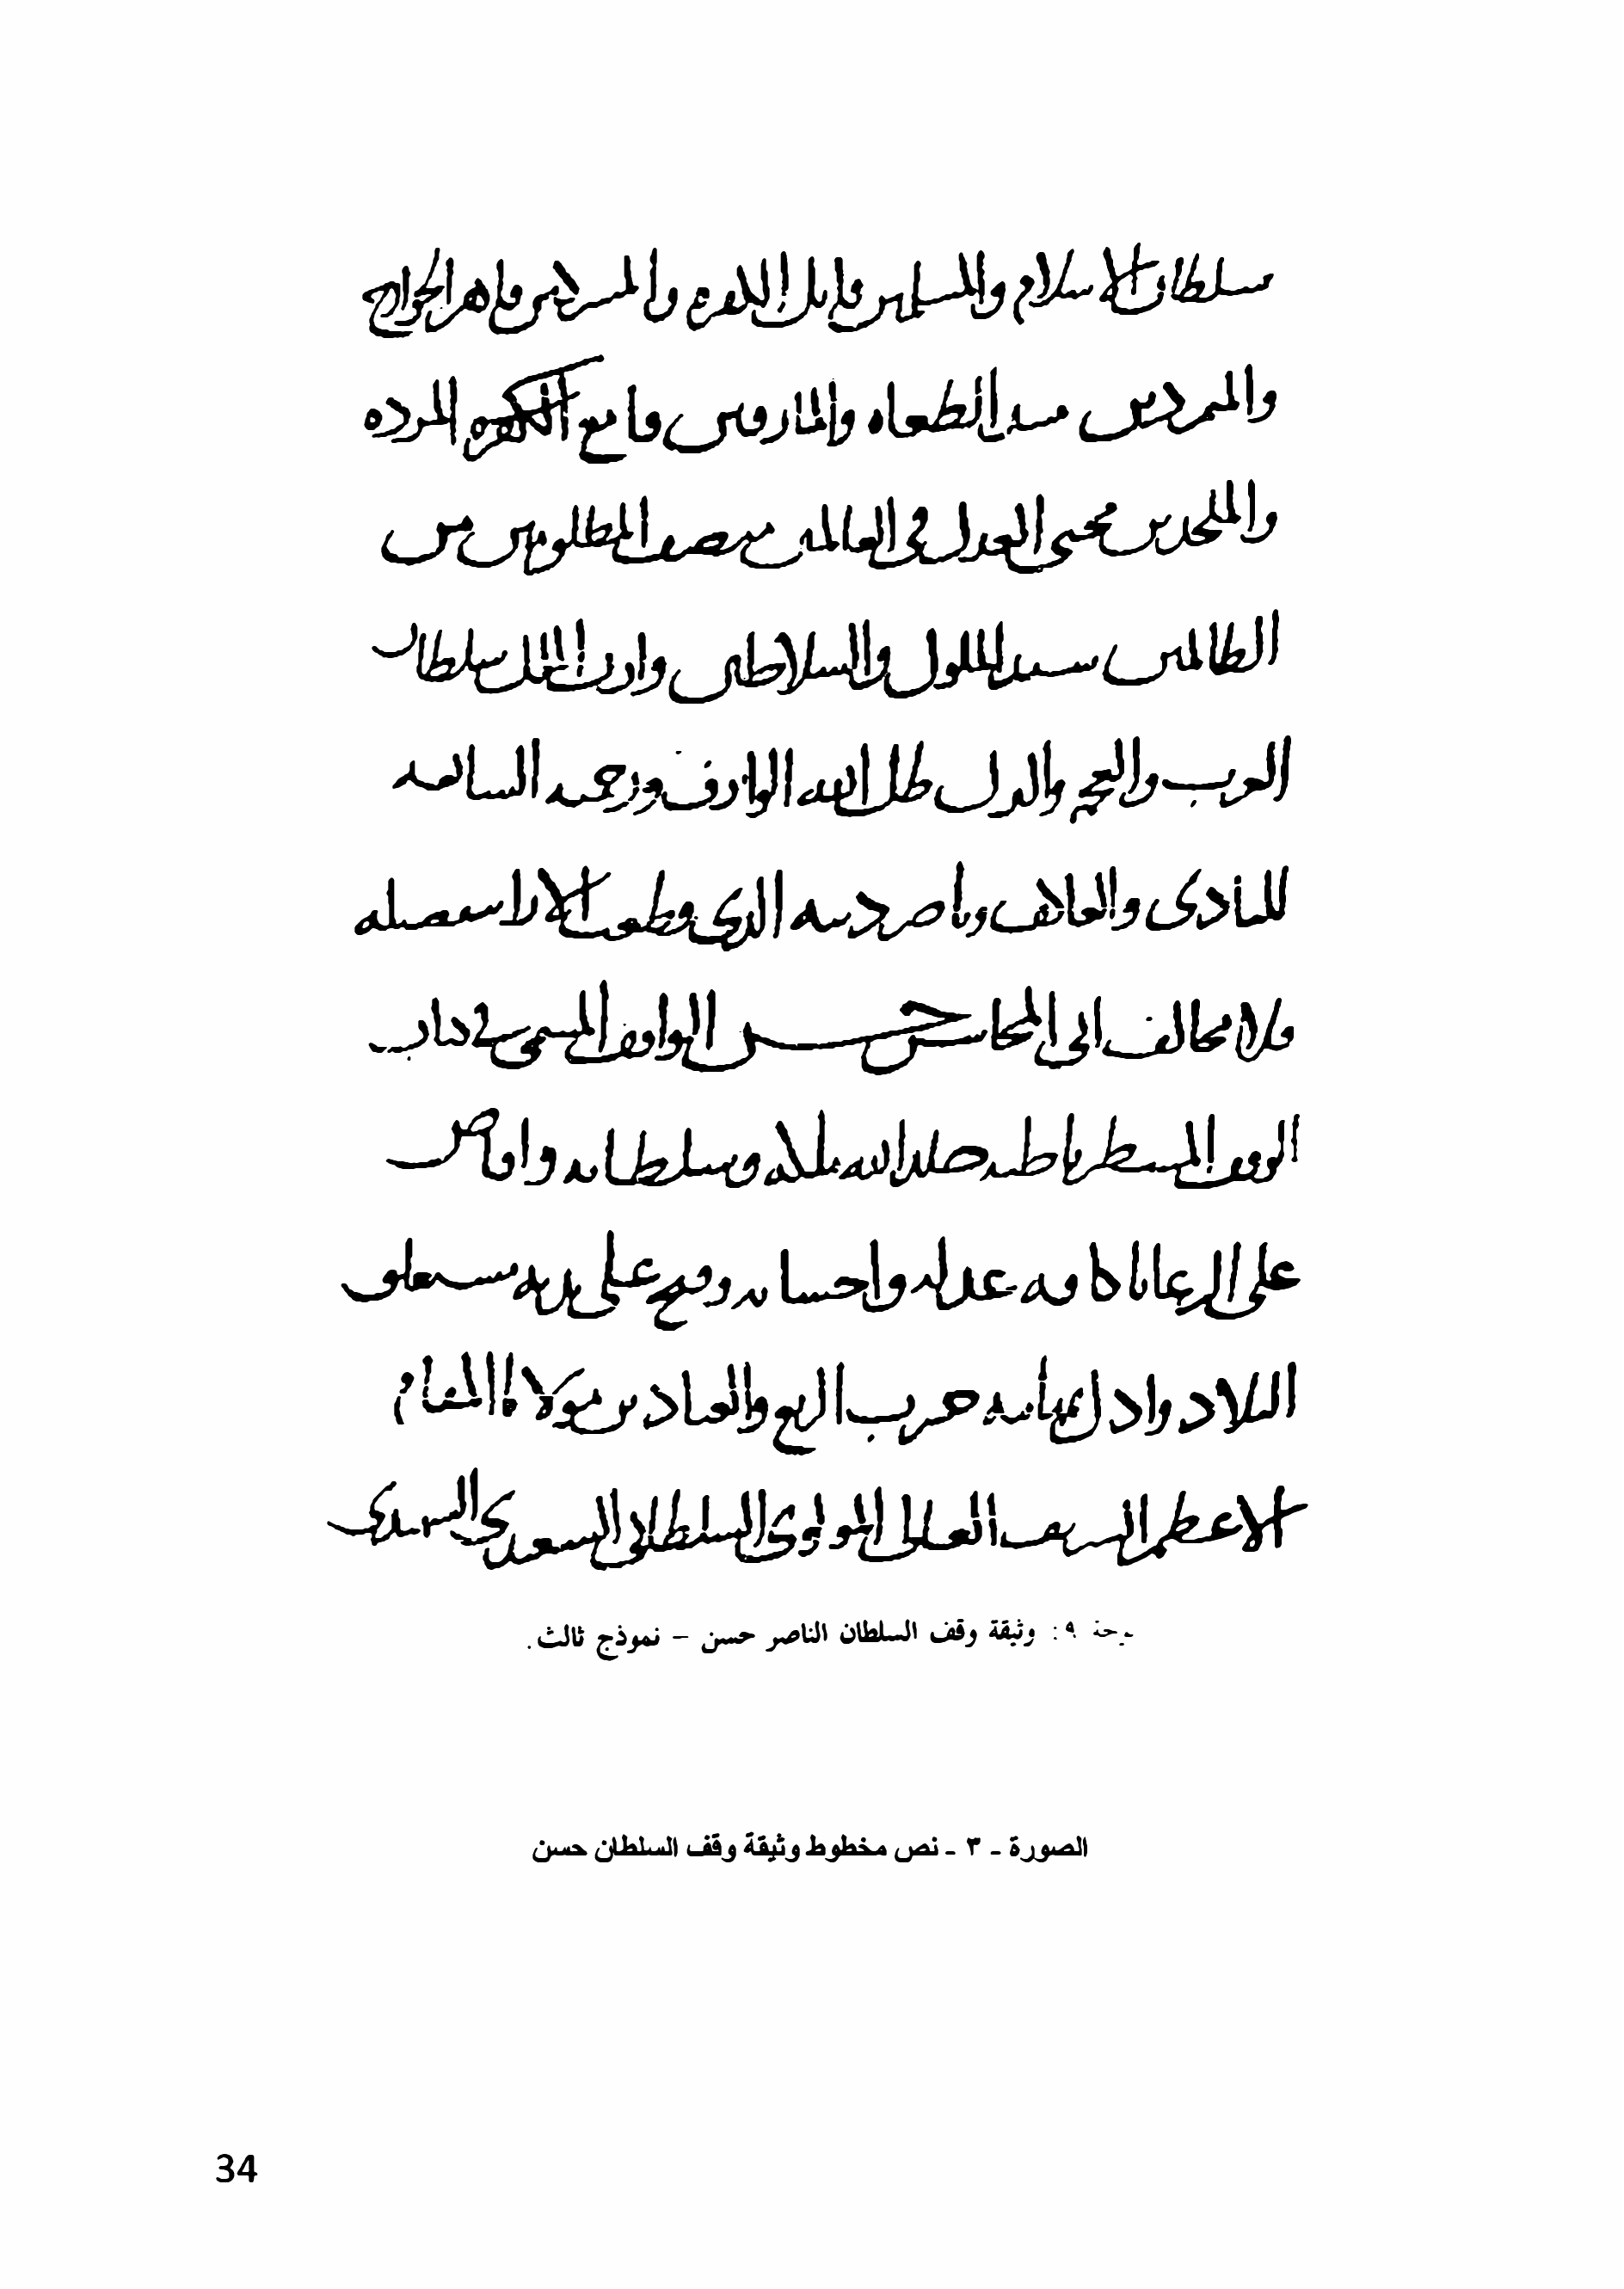 سلطان الاسلام والمسلمين قاتل الكفره والمشركين قاهر الخوارج
والمتمردين مبيد الطغاه والمارقين قامع الكفره المرده
والملحدين محيى العدل فى العالمين منصف المظلومين من
الظالمين سيد الملوك والسلاطين وارث الملك سلطان
العرب والعجم والترك ظل الله الوارف ورحمته السابغه
للبادى والعاكف وناصر دينه الذى قطعت الاراء بتفضيله
فلا مخالف ابى المحاسن حسن الواقف المسمى فى كتاب
الوقف المسطر باطنه خلد الله ملكه وسلطانه وافاض
على الرعايا كافه عدله واحسانه وفتح على يديه
البلاد واذل حرب والعناد بن مولانا المقام
الاعظم الشريف العالى المولوى السلطانى السعيدى الشهيدى
وحة ٩: وثيقة وقف السلطان الناصر حسن – نموذج ثالث.
الصورة - ٣ - نص مخطوط وثيقة وقف السلطان حسن
34